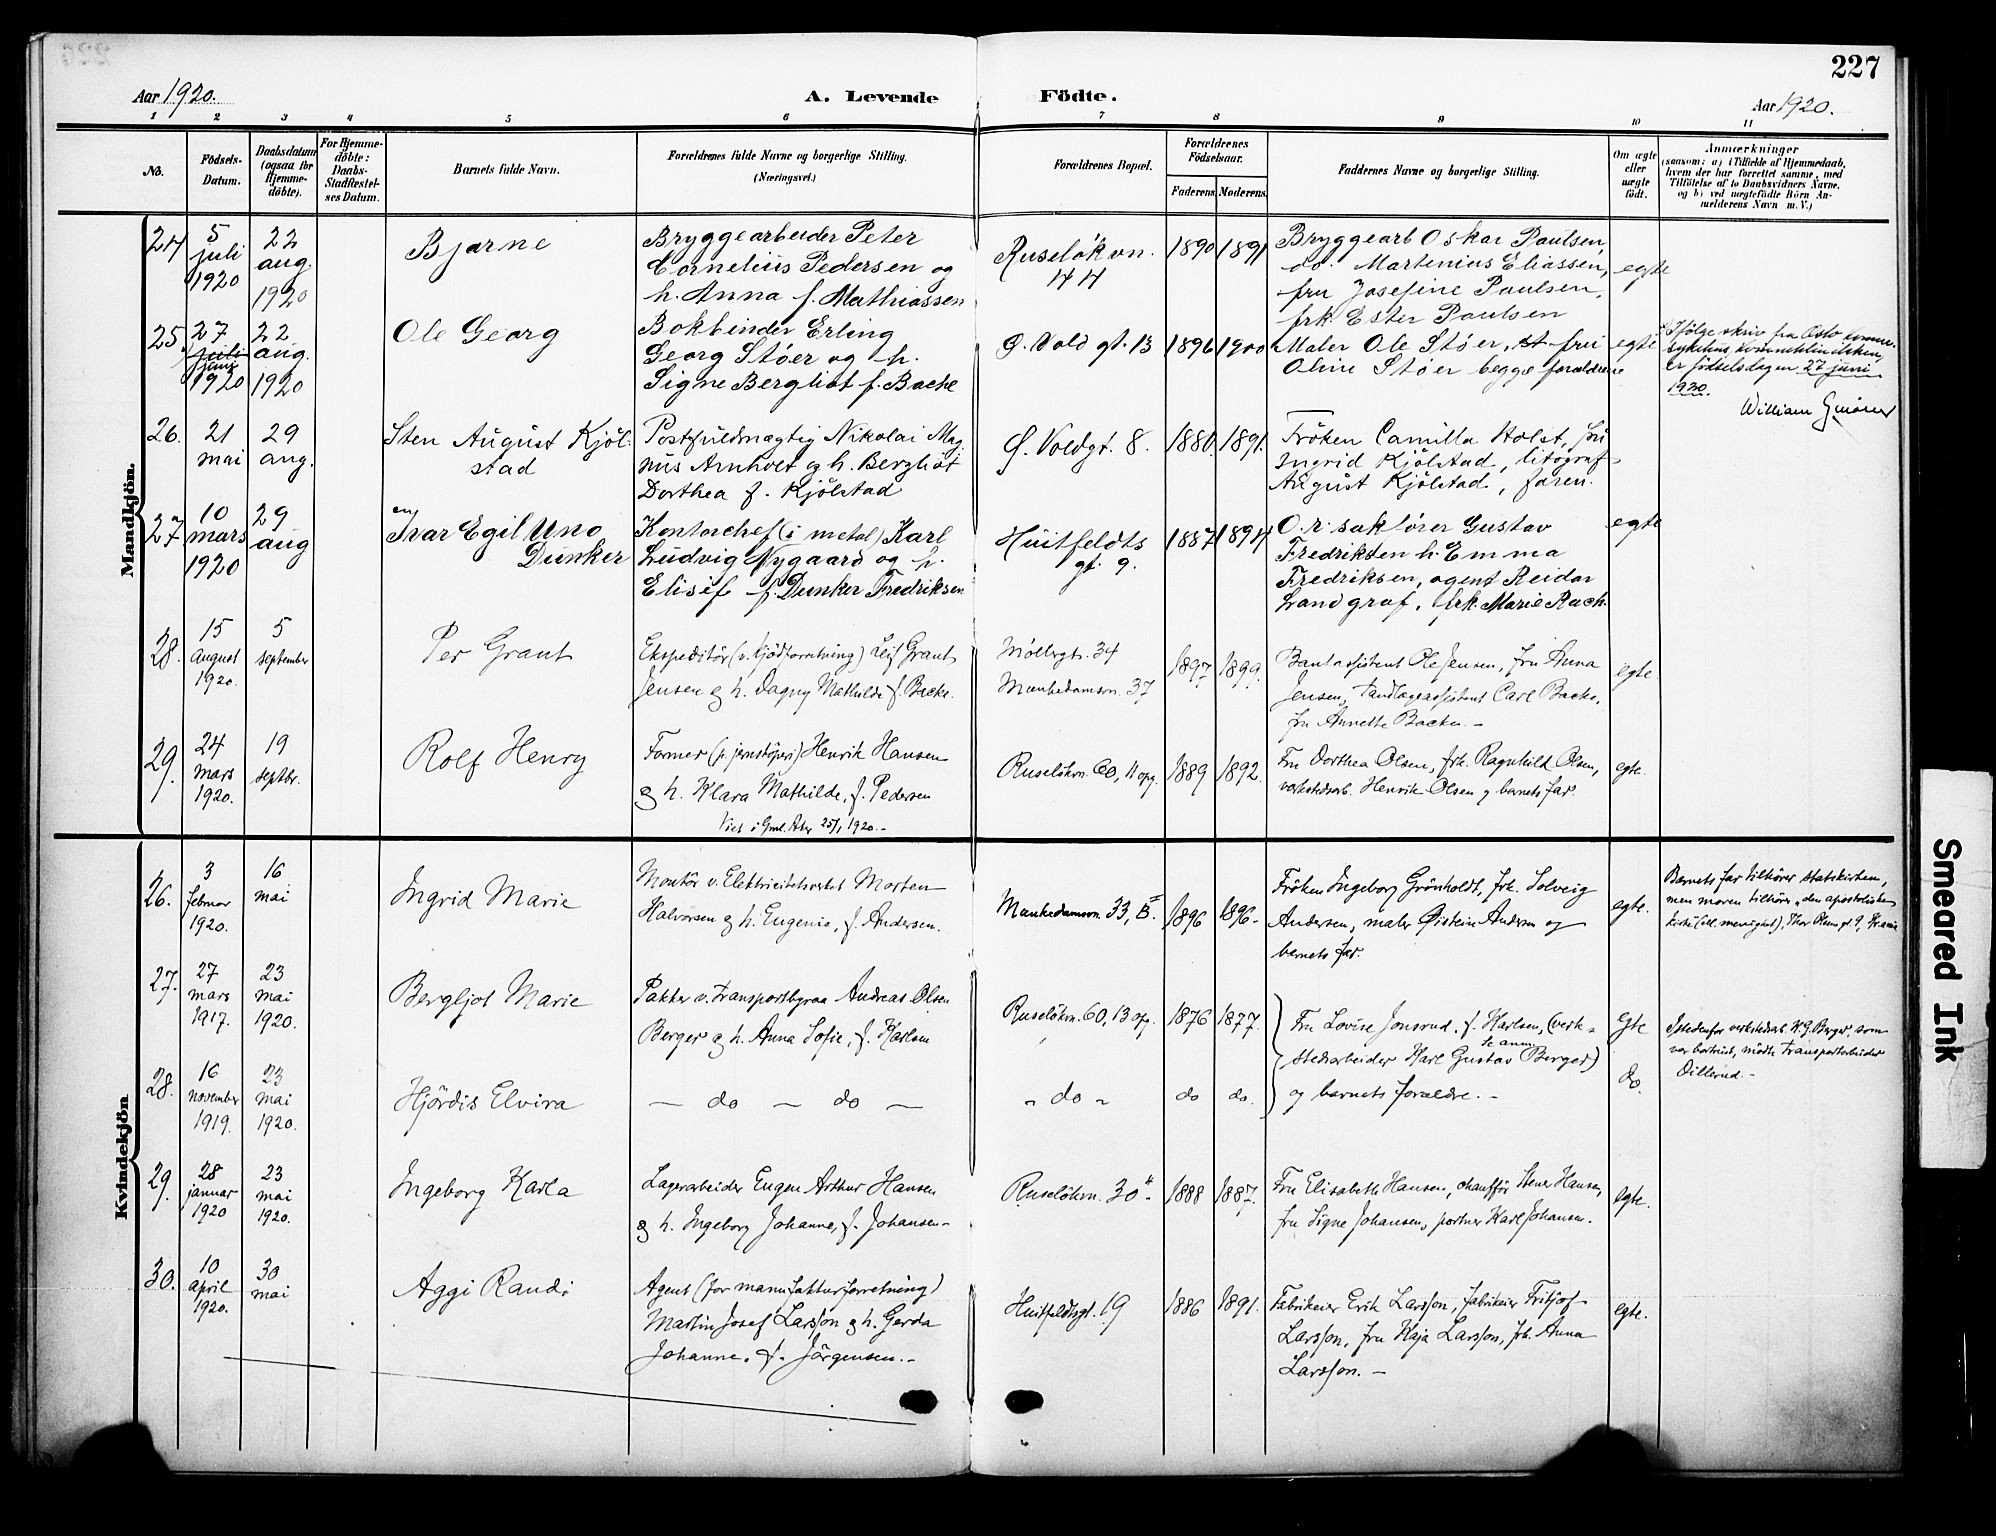 227
Aar 1920.
A. Levende Födte.
Aar 1920.
1 2 3 4 5 6 7 8 9 10 11
No.
Födsels-Datum.
Daabsdatum (ogsaa for Hjemme-döbte).
For Hjemme-döbte: Daabs-Stadfæstel-ses Datum.
Barnets fulde Navn.
Forældrenes fulde Navne og borgerlige Stilling.
(Næringsvei.)
Forældrenes Bopæl.
Forældrenes Födselsaar.
Faderens. Moderens.
Faddernes Navne og borgerlige Stilling.
Om ægte eller uægte födt.
Anmærkninger
(saasom: a) i Tilfælde af Hjemmedaab, hvem der har forrettet samme, med Tilföielse af to Daabsvidners Navne, og b) ved uægtefödte Börn An-melderens Navn m. V.)
Mandkjön.
24 5 juli 1920
22 aug. 1920
Bjarne
Bryggearbeider Peter
Cornelius Pedersen og
h. Anna f. Mathiassen
Ruselökvn. 44
1890 1891
Bryggearb Oskar Paulsen,
do. Martenius Eliassen,
fru Josefine Paulsen,
frk. Ester Paulsen
egte
25 27 juli juni 1920
22 aug. 1920
Ole Georg
Bokbinder Erling
Georg Stöer og h.
Signe Bergliot f. Bache
Ø. Vold gt. 13
1896 1900
Maler Ole Stöer, fru
Oline Stöer begge forældrene
egte
Ifölge skriv fra Oslo
er födselsdagen 27 juni
1920.
William
26. 21 mai
29 aug.
Sten August Kjöl-
stad
Postfuldmægtig Nikolai Mag
nus Arnholt og h. Bergliot
Dorthea f. Kjölstad
Ø. Voldgt. 8.
1880. 1891.
Fröken Camilla Holst, fru
Ingrid Kjölstad, litograf
August Kjölstad, faren.
27 10 mars 1920
29 aug
Ivar Egil Uno
Dunker
Kontorchef (i metal) Karl
Ludvig Nygaard og h.
Elisif f. Dunker Fredriksen
Huitfeldts
gt. 9.
1887 1894
O.r. sakförer Gustav
Fredriksen h. Emma
Fredriksen, agent Reidar
Landgraf, frk. Marie Rach.
egte
28. 15 August 1920.
5 september
Per Grant
Ekspeditör (v. kjödforretning) Leif Grant
Jensen og h. Dagny Mathilde f. Backe.
Möllergt. 34
Munkedamsvn. 37
1897 1899.
Bankassistent Ole Jensen, fru Anna
Jensen, tandlægeassistent Carl Backe,
fru Annette Backe. -
egte.
29. 24 mars 1920.
19 septbr.
Rolf Henry
Former (p. jernstöperi) Henrik Hansen
og h. Klara Mathilde, f. Pedersen
Viet i Gml. Aker 25/1 1920. -
Ruselökvn. 60, 11 opg.
1889 1892.
Fru Dorthea Olsen, frk. Ragnhild Olsen,
verkstedsarb. Henrik Olsen og barnets far.
egte.
Kvindekjön
26. 3 februar 1920.
16 mai
Ingrid Marie
Montör v. Elektricitetsverket Morten
Halvorsen og h. Eugenie, f. Andersen.
Munkedamsvn. 33, B. II
1896 1896-
Fröken Ingeborg Grönholdt, frk. Solveig
Andersen, maler Øistein Andersen og
barnets far.
egte.
Barnets far tilhörer statskirken,
men moren tilhörer "den apostoliske
kirke (ell. menighet), Thor Olsens gt. 9, Kr.ania
27. 27 mars 1917.
23 mai 1920.
Bergljot Marie
Pakker v. transportbyraa Andreas Olsen
Berger og h. Anna Sofie, f. Karlsen
Ruselökvn. 60, 13 opg.
1876 1877.
Fru Lovise Jonsrud, f. Karlsen, (verk-
stedsarbeider Karl Gustav Berger)
Se anm.
og barnets forældre. -
Egte
Istedenfor verkstedsarb. K. G. Berger, som
var bortreist, mödte transportarbeider
Dillerud. -
28. 16 november 1919.
23 mai 1920.
Hjördis Elvira
- do - do -
" do "
do do.
do.
29. 28 januar 1920
23 mai 1920.
Ingeborg Karla
Lagerarbeider Eugen Arthur Hansen
og h. Ingeborg Johanne, f. Johansen-
Ruselökvn. 30
1888 1887.
Fru Elisabeth Hansen, chaufför Stener Hansen,
fru Signe Johansen, portner Karl Johansen.
egte.
30. 10 april 1920.
30 mai
Aggi Randi
Agent (for manufakturforretning)
Martin Josef Larsson og h. Gerda
Johanne, f. Jörgensen. -
Huitfeldtsgt. 19
1886 1891.
Fabrikeier Erik Larsson, fabrikeier Fritjof
Larsson, fru Kaja Larsson, frk. Anna
Larsson. -
egte.
Smeared Ink